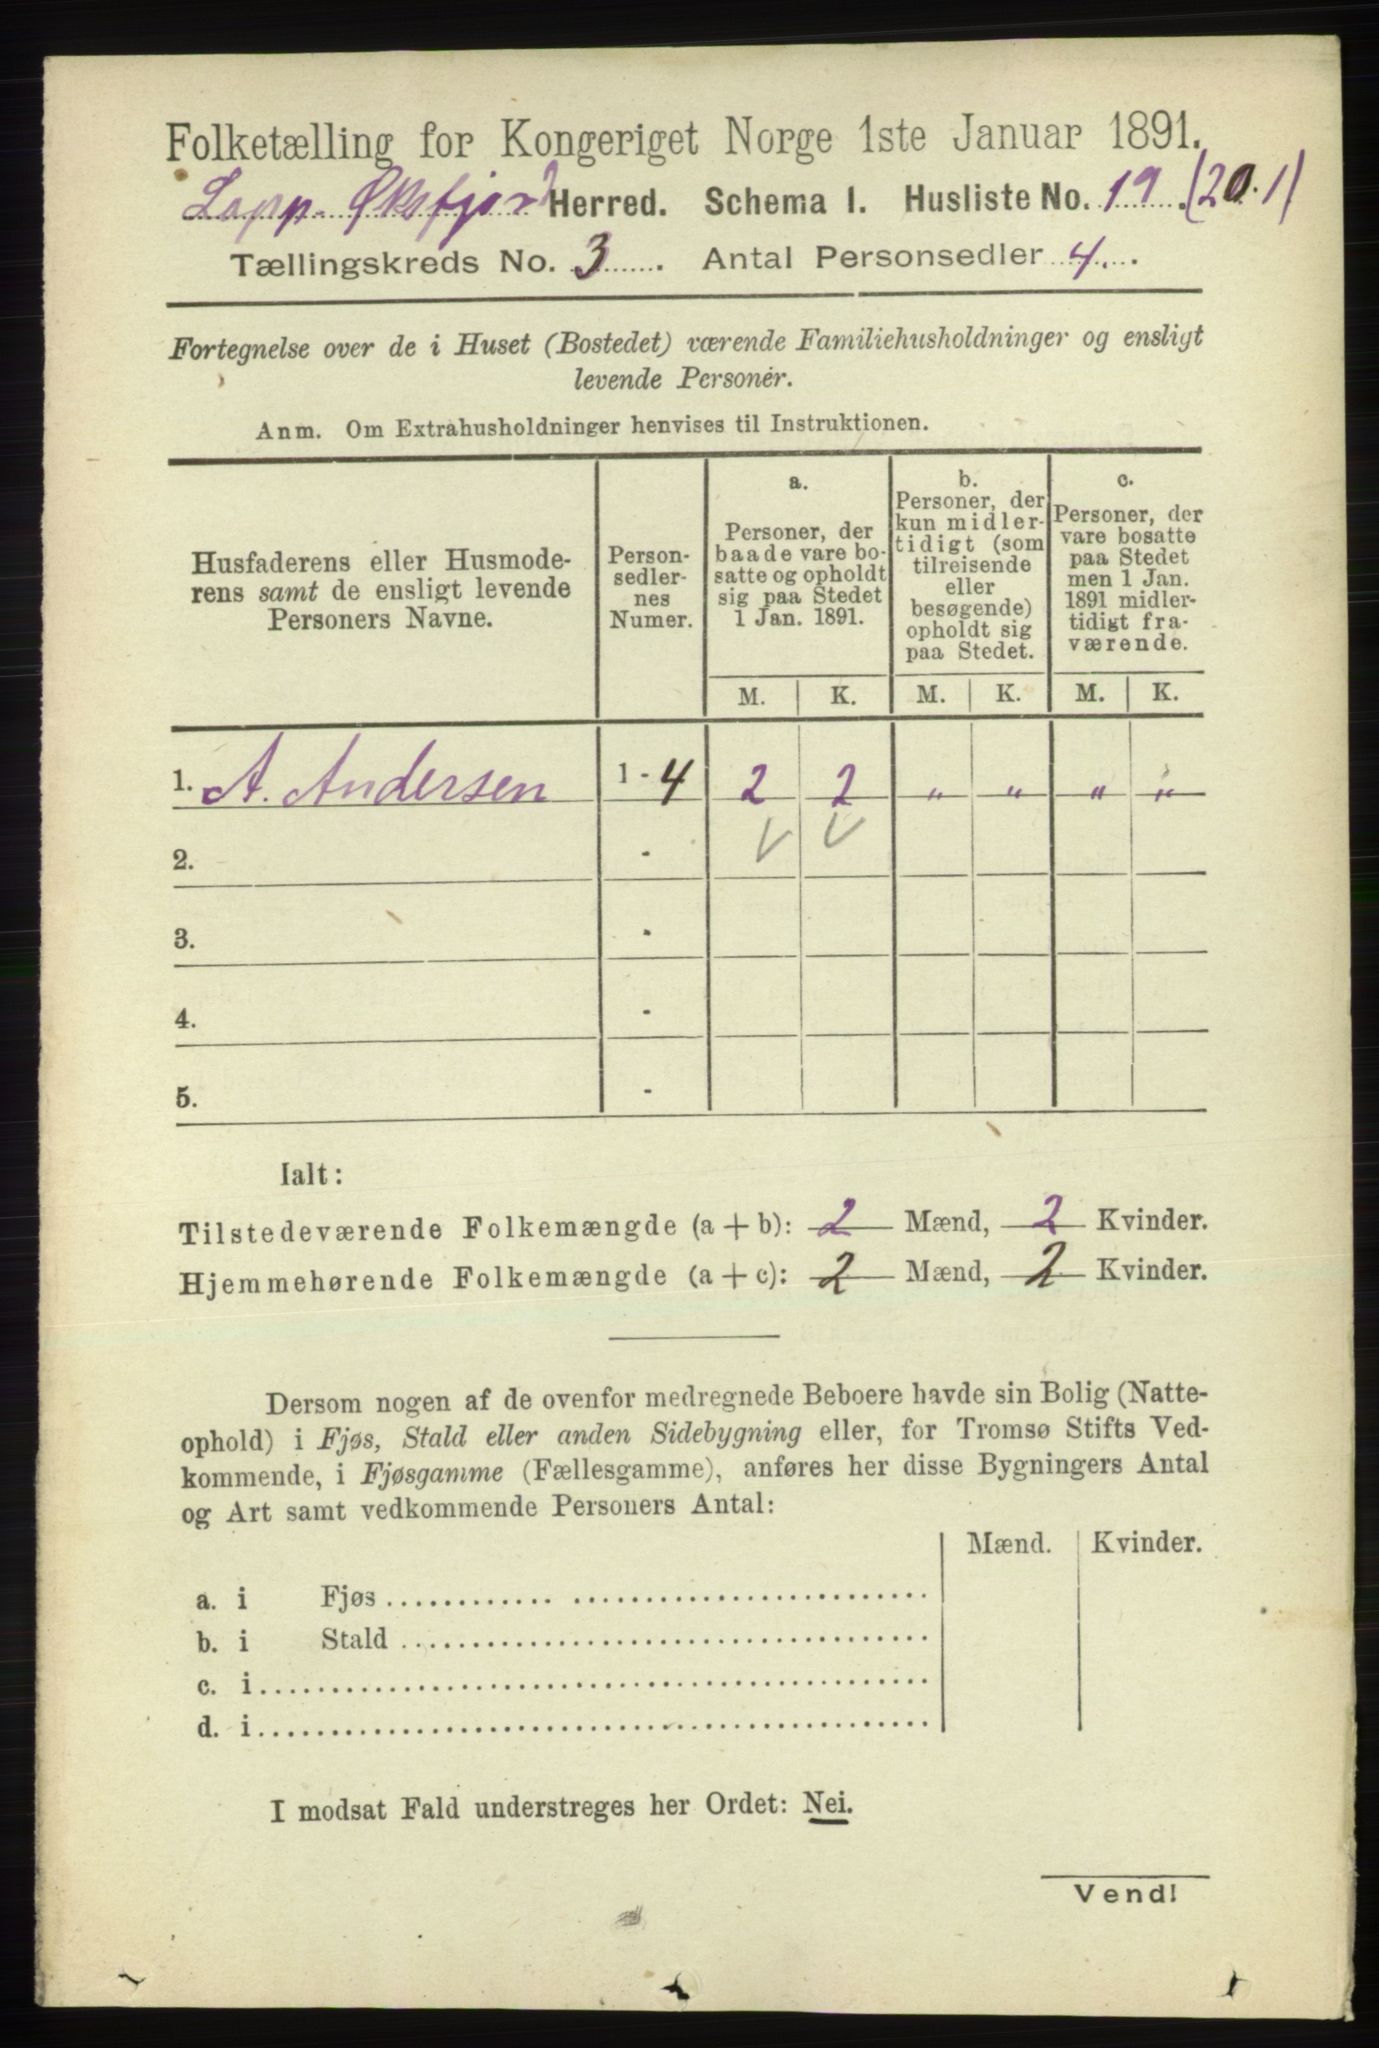 Folketælling for Kongeriget Norge 1ste Januar 1891.
Lopp. Øksfjord Herred. Schema I. Husliste No. 19 (20.1)
Tællingskreds No. 3. Antal Personsedler 4.
Fortegnelse over de i Huset (Bostedet) værende Familiehusholdninger og ensligt
levende Personer.
Anm. Om Extrahusholdninger henvises til Instruktionen.
Husfaderens eller Husmode-
rens samt de ensligt levende
Personers Navne.
Person-
sedler-
nes
Numer.
a.
Personer, der
baade vare bo-
satte og opholdt
sig paa Stedet
1 Jan. 1891.
b.
Personer, der
kun midler-
tidigt (som
tilreisende
eller
besøgende)
opholdt sig
paa Stedet.
c.
Personer, der
vare bosatte
paa Stedet
men 1 Jan.
1891 midler-
tidigt fra-
værende.
M. K. M. K. M. K.
1. A. Andersen 1 - 4 2 2 " " " "
2. -
3. -
4. -
5. -
Ialt:
Tilstedeværende Folkemængde (a + b): 2 Mænd, 2 Kvinder.
Hjemmehørende Folkemængde (a + c): 2 Mænd, 2 Kvinder.
Dersom nogen af de ovenfor medregnede Beboere havde sin Bolig (Natte-
ophold) i Fjøs, Stald eller anden Sidebygning eller, for Tromsø Stifts Ved-
kommende, i Fjøsgamme (Fællesgamme), anføres her disse Bygningers Antal
og Art samt vedkommende Personers Antal:
Mænd. Kvinder.
a. i Fjøs
b. i Stald
c. i
d. i
I modsat Fald understreges her Ordet: Nei.
Vend!